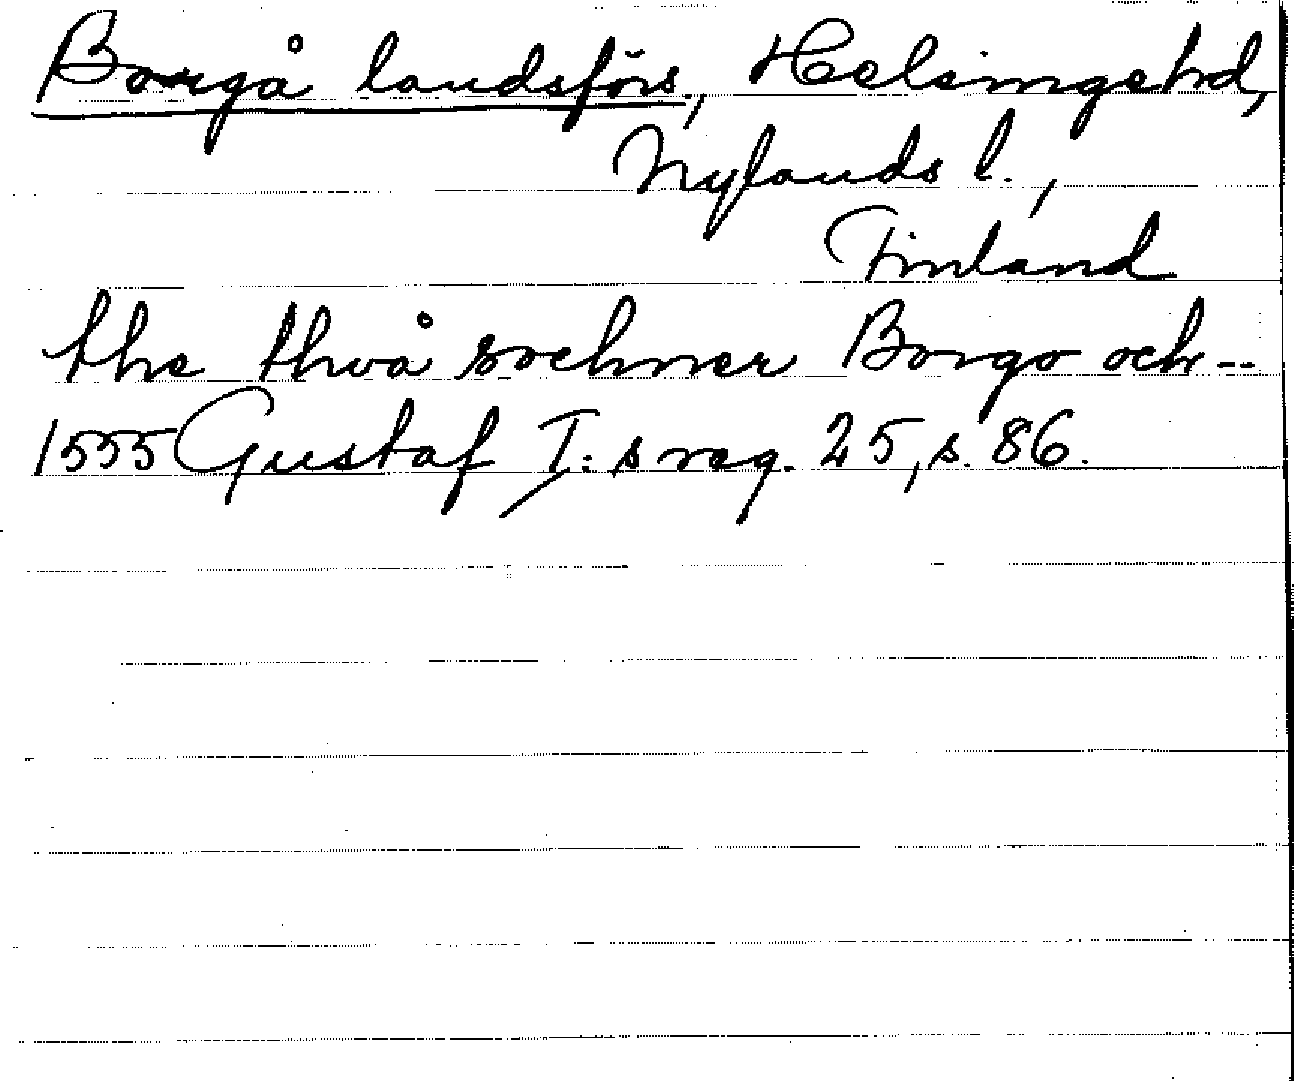 Borgå landsförs., Helsingehd,
Nylands l.,
Finland
the thvå sochner Borgo och --
1555 Gustaf I:s reg. 25, s. 86.